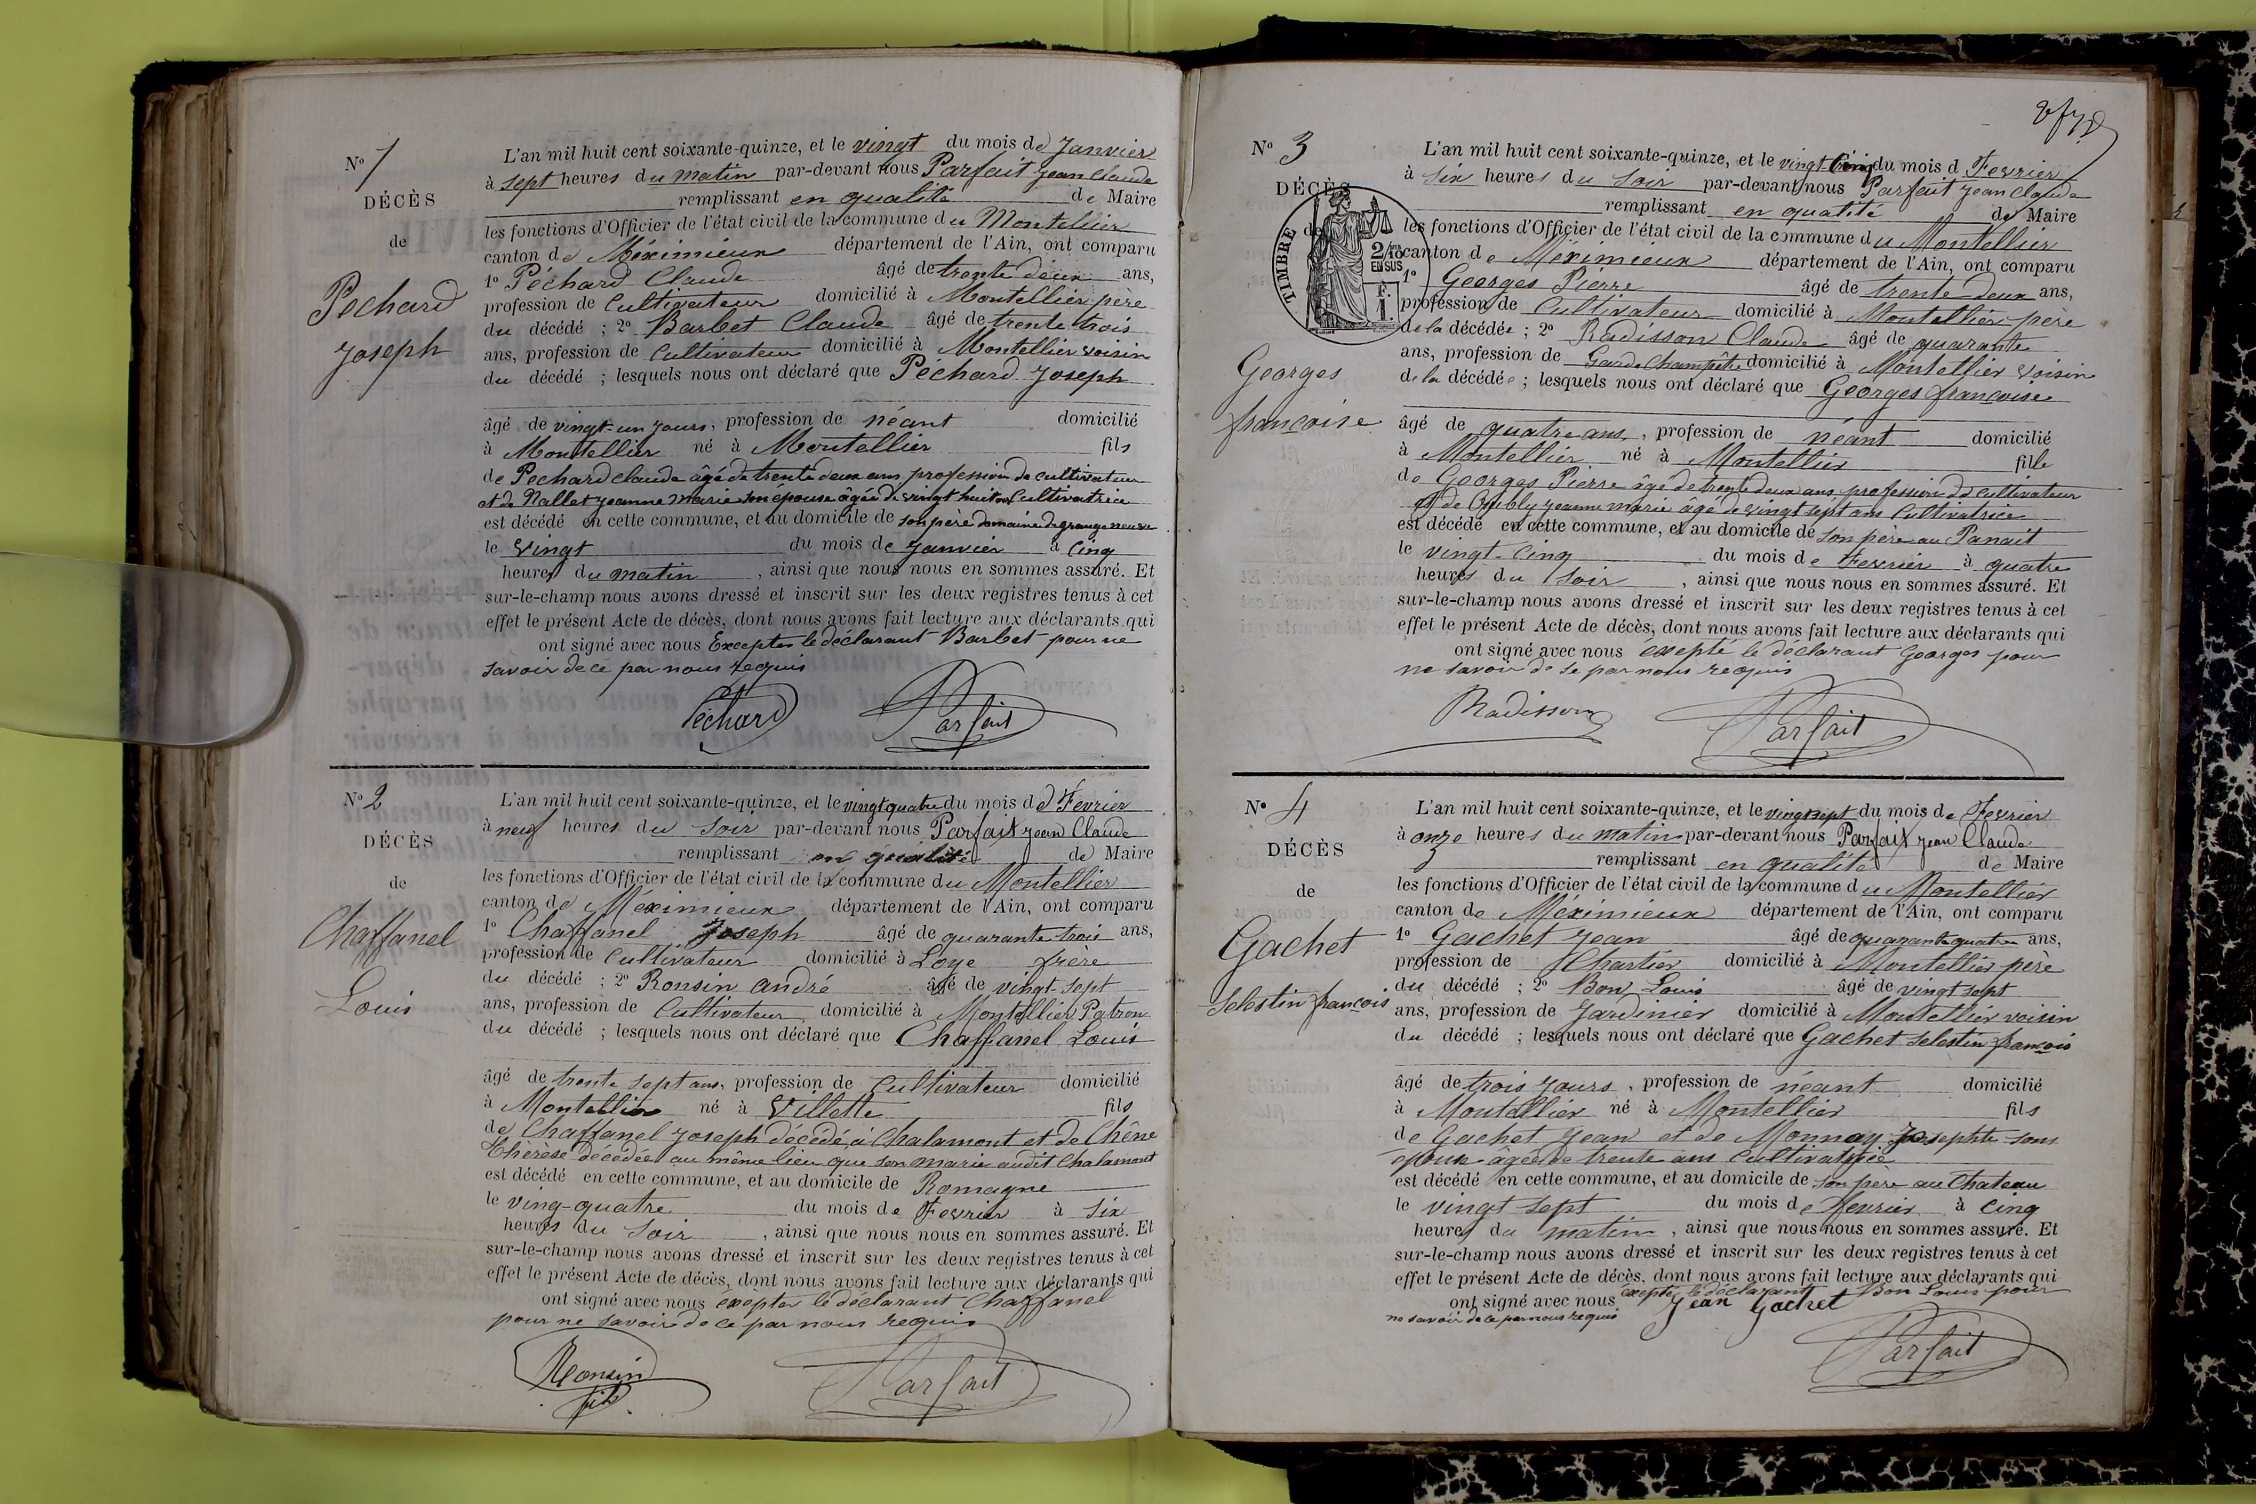 N° 1
DÉCÈS
de
Péchard
Joseph
L'an mil huit cent soixante-quinze, et le vingt du mois de Janvier
à sept heures du matin par-devant nous Parfait Jean Claude
remplissant en qualité de Maire
les fonctions d'Officier de l'état civil de la commune du Montellier
canton de Méximieux département de l'Ain, ont comparu
1° Péchard Claude âgé de trente deux ans,
profession de Cultivateur domicilié à Montellier père
du décédé ; 2° Barbet Claude âgé de trente trois
ans, profession de Cultivateur domicilié à Montellier voisin
du décédé ; lesquels nous ont déclaré que Péchard Joseph
âgé de vingt-un jours, profession de néant domicilié
à Montellier né à Montellier fils
de Pechard claude âgé de trente deux ans profession de cultivateur
et de Nallet Jeanne Marie son épouse âgée de vingt huit ans Cultivatrice
est décédé en cette commune, et au domicile de son père domaine de grange neuve
le vingt du mois de Janvier à cinq
heures du matin, ainsi que nous nous en sommes assuré. Et
sur-le-champ nous avons dressé et inscrit sur les deux registres tenus à cet
effet le présent Acte de décès, dont nous avons fait lecture aux déclarants qui
ont signé avec nous Excepter le déclarant Barbet pour ne
savoir de ce par nous requis
Péchard Parfait
N° 2
DÉCÈS
de
Chaffanel
Louis
L'an mil huit cent soixante-quinze, et le vingt quatre du mois de Fevrier
à neuf heures du soir par-devant nous Parfait Jean Claude
remplissant en qualité de Maire
les fonctions d'Officier de l'état civil de la commune du Montellier
canton de Méximieux département de l'Ain, ont comparu
1° Chaffanel Joseph âgé de quarante trois ans,
profession de Cultivateur domicilié à Loye frère
du décédé ; 2° Ronsin andré âgé de vingt-sept
ans, profession de Cultivateur domicilié à Montellier Patron
du décédé ; lesquels nous ont déclaré que Chaffanel Louis
âgé de trente sept ans, profession de Cultivateur domicilié
à Montellier né à Villette fils
de Chaffanel Joseph décédé à Chalamont et de Chêne
Thérèse décédée au même lieu que son marie audit Chalamont
est décédé en cette commune, et au domicile de Romagne
le ving-quatre du mois de Fevrier à six
heures du soir, ainsi que nous nous en sommes assuré. Et
sur-le-champ nous avons dressé et inscrit sur les deux registres tenus à cet
effet le présent Acte de décès, dont nous avons fait lecture aux déclarants qui
ont signé avec nous éxepter le déclarant Chaffanel
pour ne savoir de ce par nous requis
Ronsin fils Parfait
N° 3
DÉCÈS
de
TIMBRE
2/10mes
EN SUS
F.
1.
Georges
françoise
L'an mil huit cent soixante-quinze, et le vingt cinq du mois d Fevrier
à six heures du soir par-devant nous Parfait Jean Claude
remplissant en qualité de Maire
les fonctions d'Officier de l'état civil de la commune du Montellier
canton de Méximieux département de l'Ain, ont comparu
1° Georges Pierre âgé de trente-deux ans,
profession de Cultivateur domicilié à Montellier père
de la décédée ; 2° Radisson Claude âgé de quarante
ans, profession de Garde champêtre domicilié à Montellier voisin
de la décédée ; lesquels nous ont déclaré que Georges françoise
âgé de quatre ans, profession de néant domicilié
à Montellier né à Montellier fille
de Georges Pierre âgé de trente deux ans profession de cultivateur
et de Jeanne marie âgé de vingt sept ans Cultivatrice
est décédé en cette commune, et au domicile de son père au Panait
le vingt-cinq du mois de Fevrier à quatre
heures du soir, ainsi que nous nous en sommes assuré. Et
sur-le-champ nous avons dressé et inscrit sur les deux registres tenus à cet
effet le présent Acte de décès, dont nous avons fait lecture aux déclarants qui
ont signé avec nous éxepté le déclarant Georges pour
ne savoir de se par nous requis
Radisson Parfait
N° 4
DÉCÈS
de
Gachet
Selestin françois
L'an mil huit cent soixante-quinze, et le vingt sept du mois de Fevrier
à onze heures du matin par-devant nous Parfait Jean Claude
remplissant en qualité de Maire
les fonctions d'Officier de l'état civil de la commune du Montellier
canton de Méximieux département de l'Ain, ont comparu
1° Gachet Jean âgé de quarante quatre ans,
profession de Chartier domicilié à Montellier père
du décédé ; 2° Bon Louis âgé de vingt sept
ans, profession de Jardinier domicilié à Montellier voisin
du décédé ; lesquels nous ont déclaré que Gachet Selestin françois
âgé de trois jours, profession de néant domicilié
à Montellier né à Montellier fils
de Gachet Jean et de Monnay Josephte sons
épouse âgée de trente ans Cultivatrice
est décédé en cette commune, et au domicile de son père au Chateau
le vingt sept du mois de fevrier à cinq
heures du matin, ainsi que nous nous en sommes assuré. Et
sur-le-champ nous avons dressé et inscrit sur les deux registres tenus à cet
effet le présent Acte de décès, dont nous avons fait lecture aux déclarants qui
ont signé avec nous éxepté le déclarant Bon Louis pour
ne savoir de ce par nous requis
Jean Gachet
Parfait